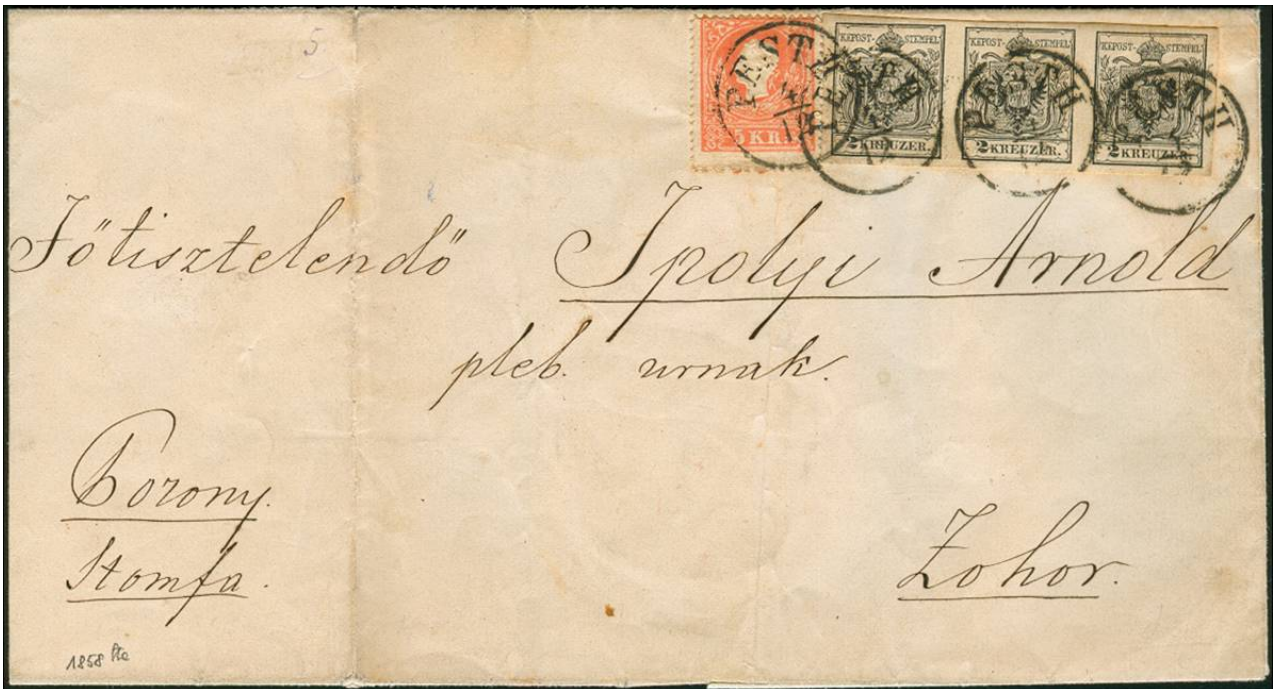 5
PESTH
4/12
5 KR.
KKPOST-STEMPEL
2 KREUZER.
PESTH
KKPOST-STEMPEL
2 KREUZER.
PESTH
KKPOST-STEMPEL
2 KREUZER.
PESTH
Főtisztelendő Ipolyi Arnold
pleb. urnak.
Pozony.
Stomfa.
Zohor.
1858